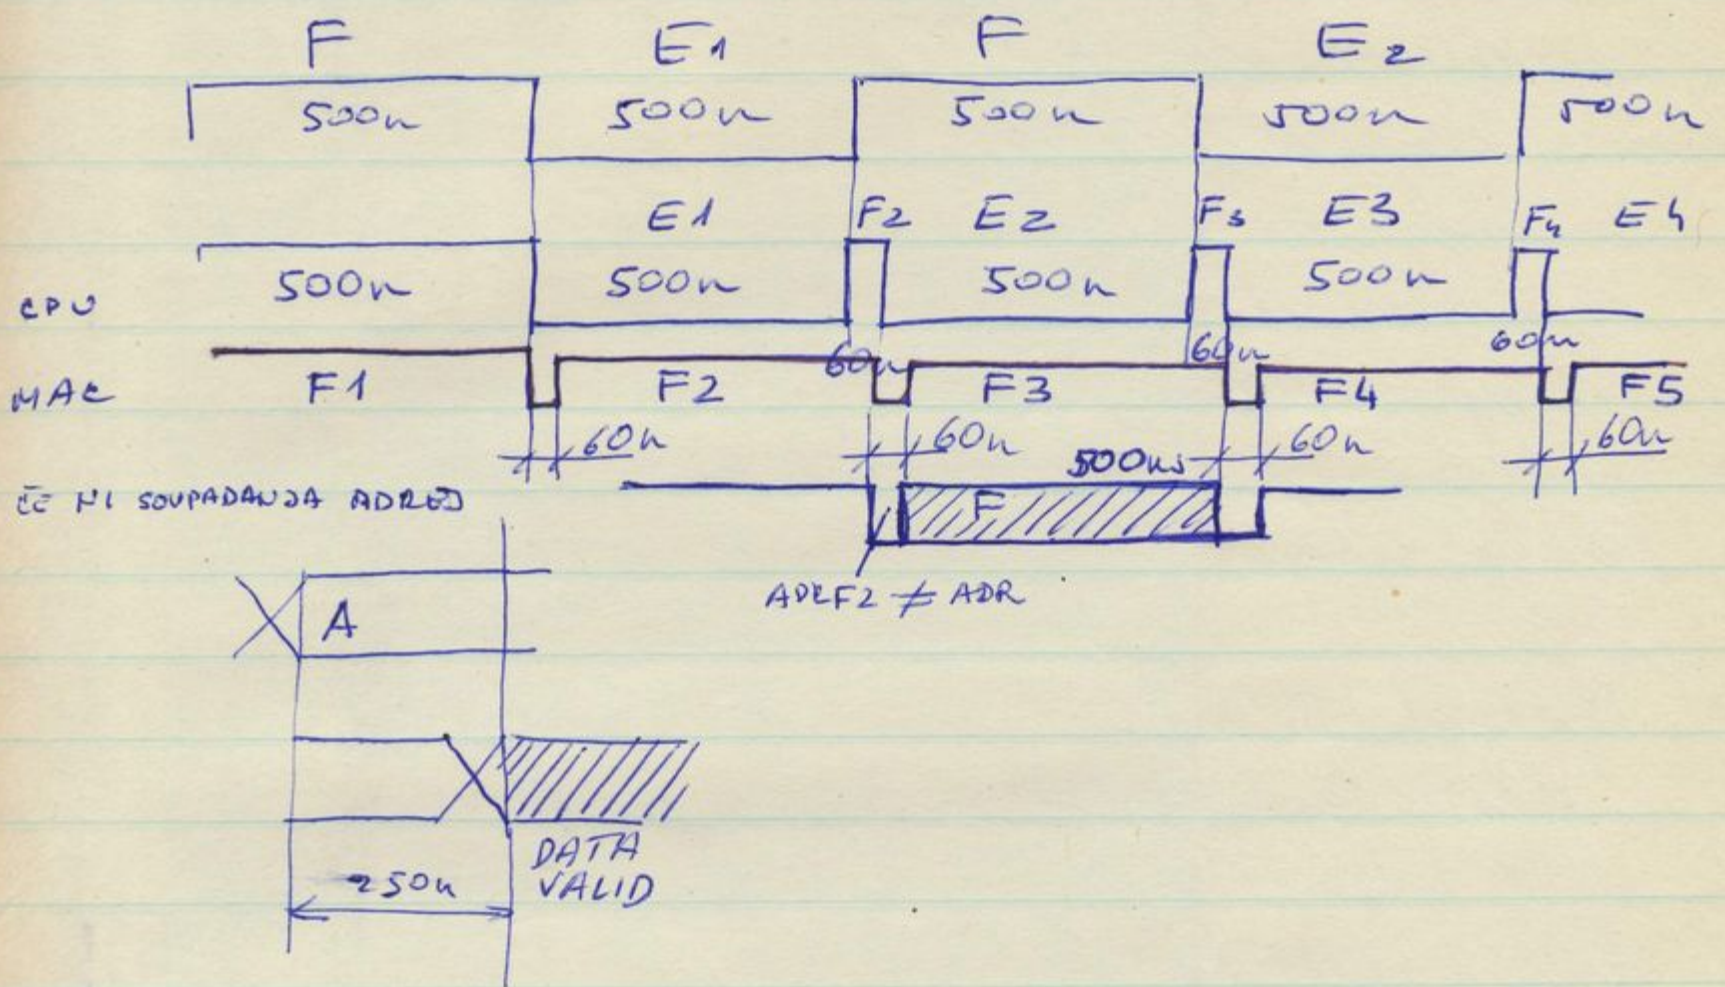 F E1 F E2
500n 500n 500n 500n 500n
E1 F2 E2 F3 E3 F4 E4
CPU 500n 500n 500n 500n
60n 60n 60n
MAC F1 F2 F3 F4 F5
60n 60n 60n 60n
500ns
ČE NI SOUPADANJA ADRES F
ADRF2 ≠ ADR
A
DATA
VALID
250n